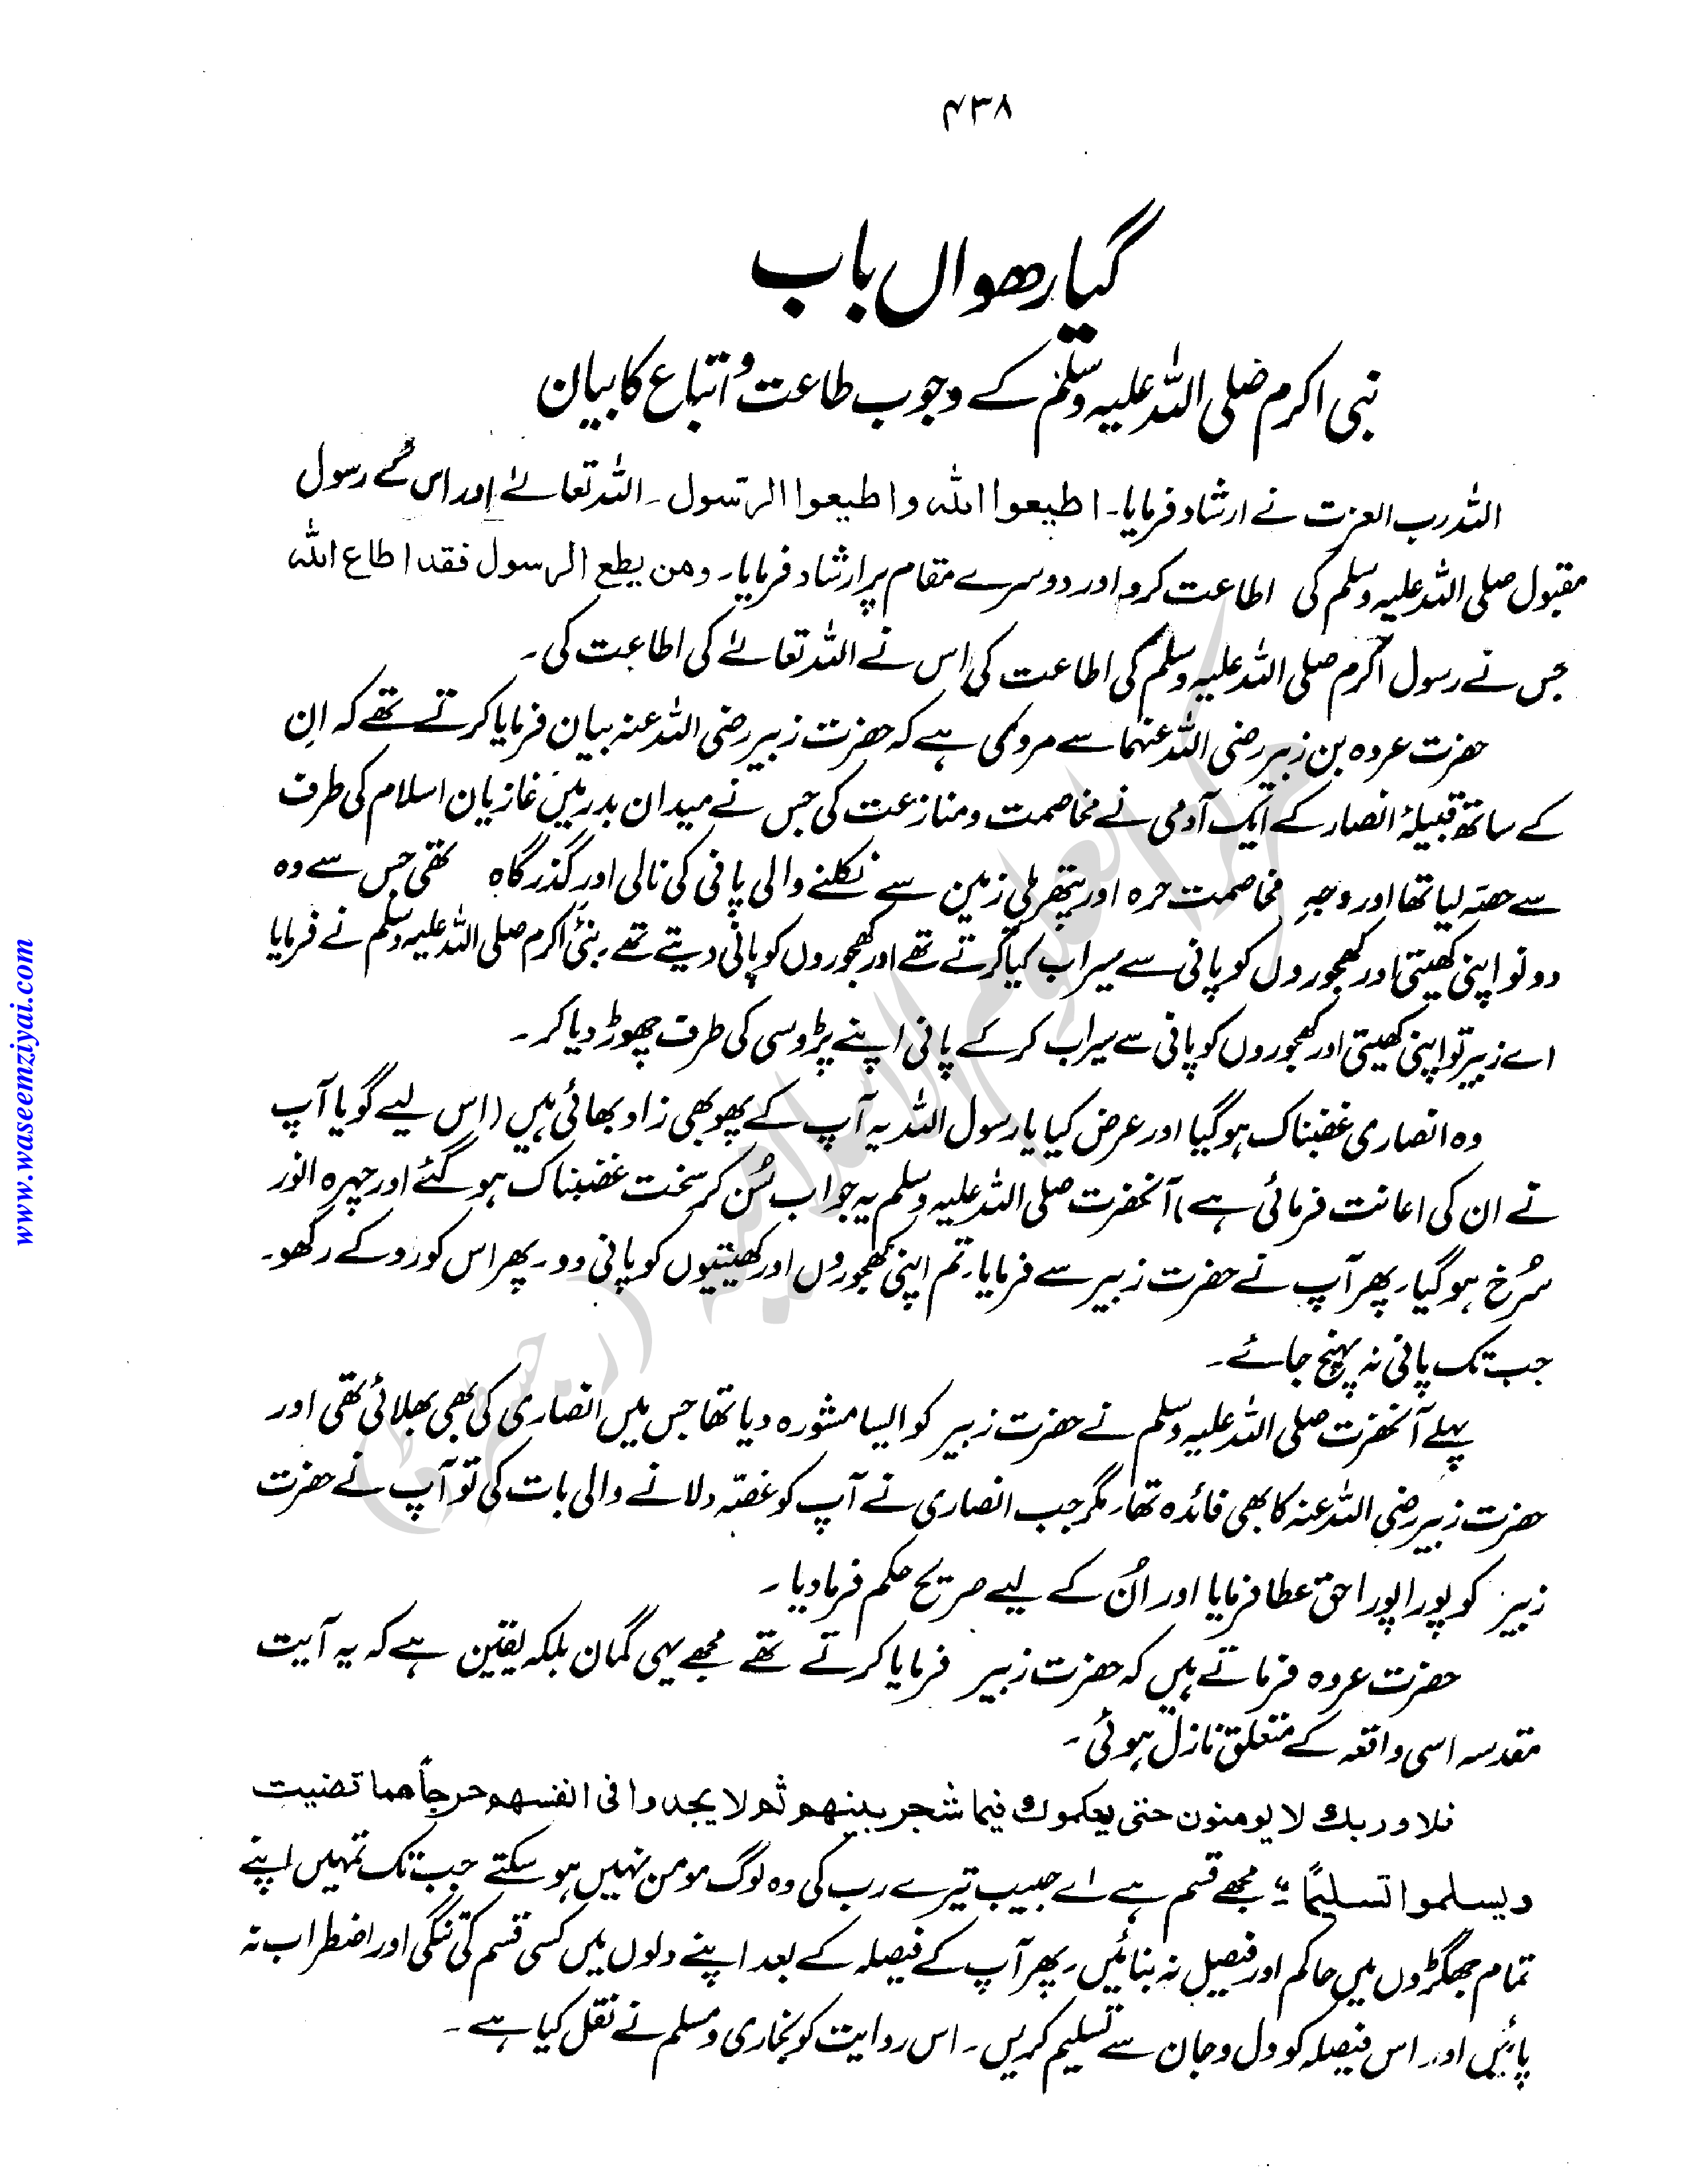 ۴۳۸
گیارھواں باب
نبی اکرم صلی اللہ علیہ وسلم کے وجوب طاعت و اتباع کا بیان
اللہ رب العزت نے ارشاد فرمایا۔ اطیعوا اللہ واطیعوا الرسول۔ اللہ تعالےٰ اور اس کے رسول
مقبول صلی اللہ علیہ وسلم کی اطاعت کرو اور دوسرے مقام پر ارشاد فرمایا۔ ومن یطع الرسول فقد اطاع اللہ
جس نے رسول اکرم صلی اللہ علیہ وسلم کی اطاعت کی اس نے اللہ تعالےٰ کی اطاعت کی۔
حضرت عروہ بن زبیر رضی اللہ عنہما سے مروی ہے کہ حضرت زبیر رضی اللہ عنہ بیان فرمایا کرتے تھے کہ اِن
کے ساتھ قبیلۂ انصار کے ایک آدمی نے مخاصمت ومنازعت کی جس نے میدان بدر میں غازیان اسلام کی طرف
سے حصّہ لیا تھا اور وجہِ مخاصمت حرہ اور پتھریلی زمین سے نکلنے والی پانی کی نالی اور گذرگاہ تھی جس سے وہ
دونو اپنی کھیتی اور کھجوروں کو پانی سے سیراب کیا کرتے تھے اور کھجوروں کو پانی دیتے تھے۔ نبیٔ اکرم صلی اللہ علیہ وسلم نے فرمایا
اے زبیر تو اپنی کھیتی اور کھجوروں کو پانی سے سیراب کر کے پانی اپنے پڑوسی کی طرف چھوڑ دیا کر۔
وہ انصاری غضبناک ہو گیا اور عرض کیا یا رسول اللہ یہ آپ کے پھوپھی زاد بھائی ہیں (اس لیے گویا آپ
نے ان کی اعانت فرمائی ہے) آنحضرت صلی اللہ علیہ وسلم یہ جواب سُن کر سخت غضبناک ہو گئے اور چہرہ انور
سُرخ ہو گیا۔ پھر آپ نے حضرت زبیر سے فرمایا۔ تم اپنی کھجوروں اور کھیتیوں کو پانی دو۔ پھر اس کو روکے رکھو۔
جب تک پانی نہ پہنچ جائے۔
پہلے آنحضرت صلی اللہ علیہ وسلم نے حضرت زبیر کو ایسا مشورہ دیا تھا جس میں انصاری کی بھی بھلائی تھی اور
حضرت زبیر رضی اللہ عنہ کا بھی فائدہ تھا۔ مگر جب انصاری نے آپ کو غصّہ دلانے والی بات کی تو آپ نے حضرت
زبیر کو پورا پورا حق عطا فرمایا اور اُن کے لیے صریح حکم فرما دیا۔
حضرت عروہ فرماتے ہیں کہ حضرت زبیر فرمایا کرتے تھے مجھے یہی گمان بلکہ یقین ہے کہ یہ آیت
مقدسہ اسی واقعہ کے متعلق نازل ہوئی۔
فلا وربک لا یومنون حتی یحکموک فیما شجر بینھم ثم لا یجدوا فی انفسھم حرجاً مما قضیت
ویسلموا تسلیمًا ؞ مجھے قسم ہے اے حبیب تیرے رب کی وہ لوگ مومن نہیں ہو سکتے جب تک تمہیں اپنے
تمام جھگڑوں میں حاکم اور فیصل نہ بنائیں۔ پھر آپ کے فیصلہ کے بعد اپنے دلوں میں کسی قسم کی تنگی اور اضطراب نہ
پائیں اور اس فیصلہ کو دل وجان سے تسلیم کریں۔ اس روایت کو بخاری ومسلم نے نقل کیا ہے۔
www.waseemziyai.com